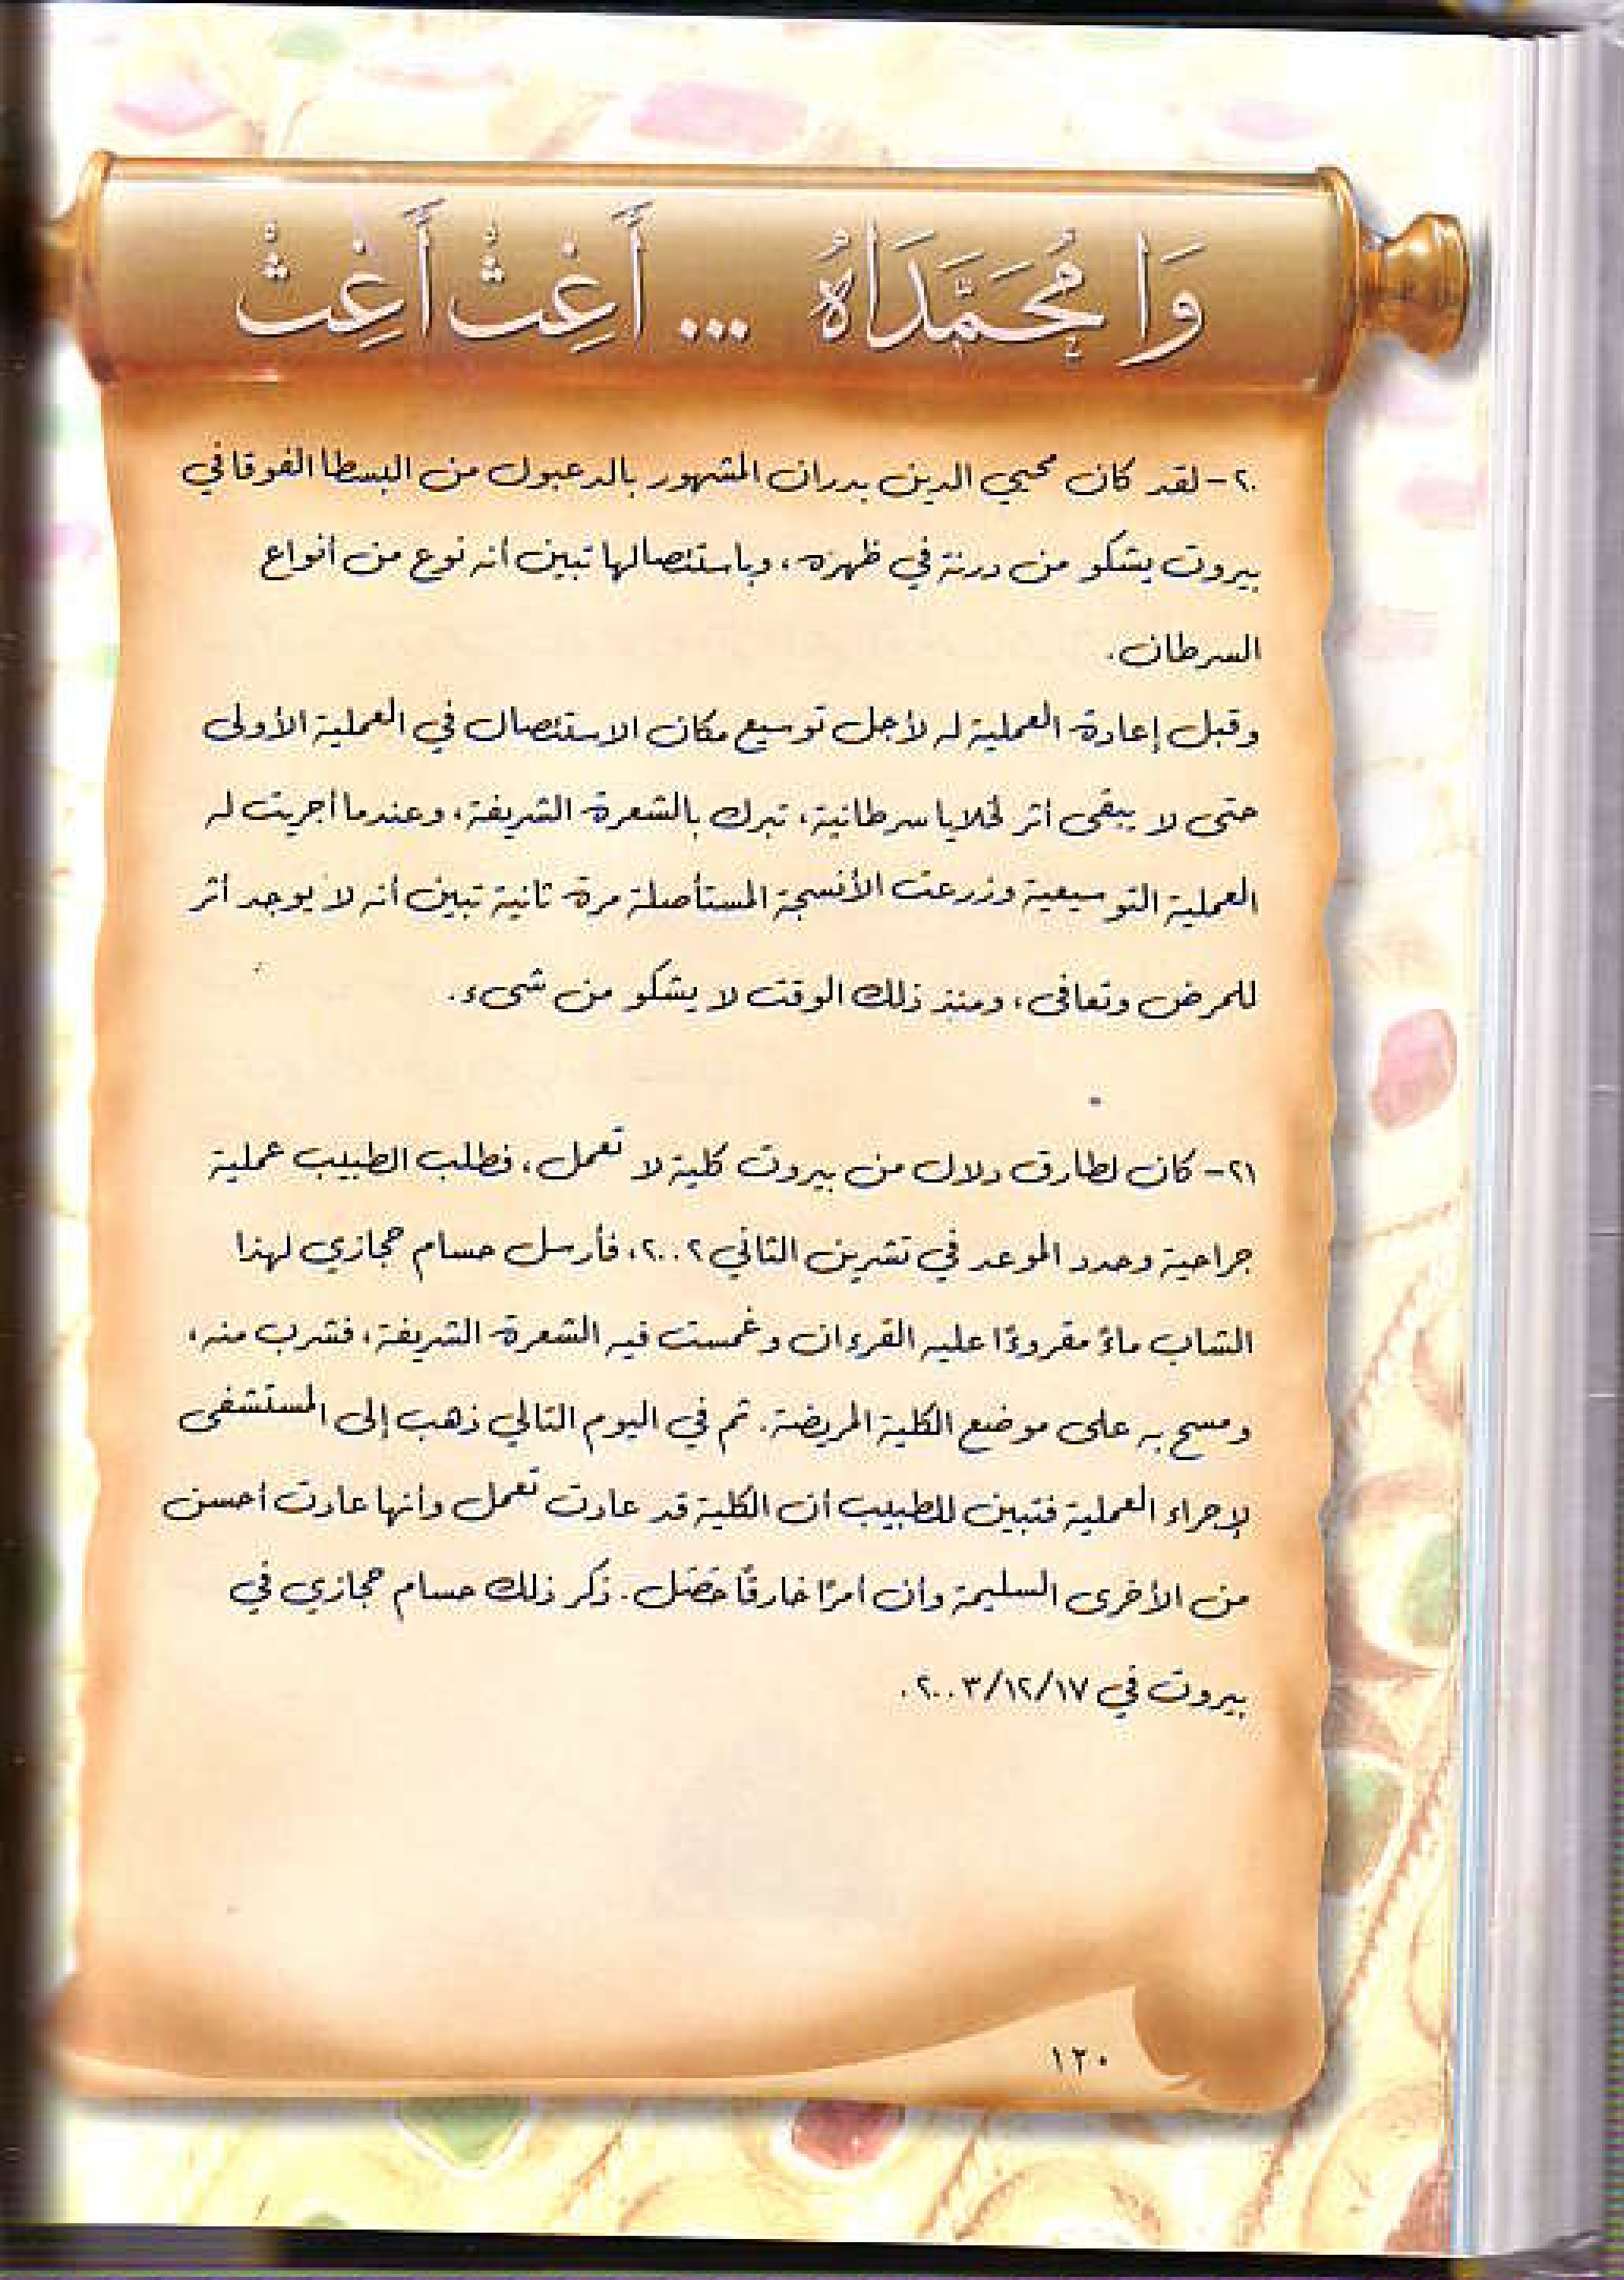 وَا مُحَمَّدَاهُ ... أَغِثْ أَغِثْ
٢٠- لقد كان محيي الدين بدران المشهور بالدعبول من البسطا الفوقا في
بيروت يشكو من درنة في ظهره، وباستئصالها تبين أنه نوع من أنواع
السرطان.
وقبل إعادة العملية له لأجل توسيع مكان الاستئصال في العملية الأولى
حتى لا يبقى أثر لخلايا سرطانية، تبرك بالشعرة الشريفة، وعندما أجريت له
العملية التوسيعية وزرعت الأنسجة المستأصلة مرة ثانية تبين أنه لا يوجد أثر
للمرض وتعافى، ومنذ ذلك الوقت لا يشكو من شىء.
٢١- كان لطارق دلال من بيروت كلية لا تعمل، فطلب الطبيب عملية
جراحية وحدد الموعد في تشرين الثاني ٢٠٠٢، فأرسل حسام حجازي لهذا
الشاب ماءً مقروءًا عليه القرءان وغمست فيه الشعرة الشريفة، فشرب منه،
ومسح به على موضع الكلية المريضة. ثم في اليوم التالي ذهب إلى المستشفى
لإجراء العملية فتبين للطبيب أن الكلية قد عادت تعمل وأنها عادت أحسن
من الأخرى السليمة وأن أمرًا خارقًا حَصَل. ذكر ذلك حسام حجازي في
بيروت في ٢٠٠٣/١٢/١٧.
١٢٠